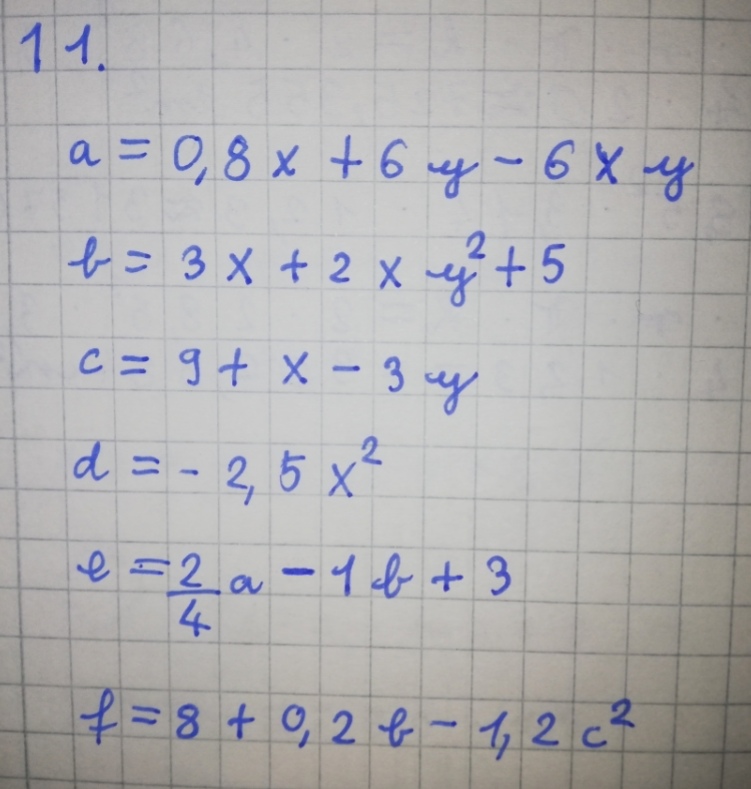 11.
a = 0,8x + 6y - 6xy
b = 3x + 2xy² + 5
c = 9 + x - 3y
d = - 2,5x²
e = 2/4 a - 1b + 3
f = 8 + 0,2b - 1,2c²